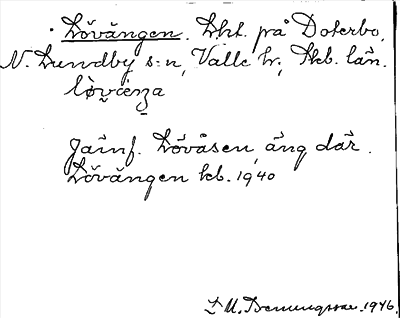 Lövängen. Lht. på Doterbo,
N. Lundby s:n, Valle hr, Skb. län.
lòvæŋa
Jämf. Lövåsen, äng där.
Lövängen kb. 1940
1946.